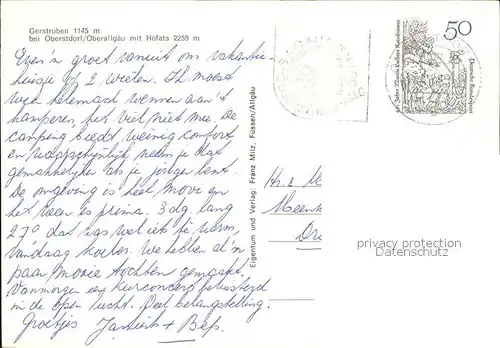 Gerstruben 1145 m
bei Oberstdorf/Oberallgäu mit Höfats 2259 m
Even 'n groet vanuit ons vakantie-
huisje op 2 wielen. Ik moest
wel helemaal wennen aan 't
kamperen, het viel niet mee. De
camping biedt weinig comfort
en waarschijnlijk neem je dat
gemakkelijker als je jonger bent.
De omgeving is heel mooi en
het weer is prima. 3 dg. lang
27° dat was wel iets te warm,
vandaag koeler. We hebben al 'n
paar mooie tochten gemaakt.
Vanmorgen een kurconcert beluisterd
in de open lucht. Veel belangstelling.
Groetjes + Bep.
Eigentum und Verlag: Franz Milz, Füssen/Allgäu
50
Deutsche Bundespost
privacy protection
Datenschutz